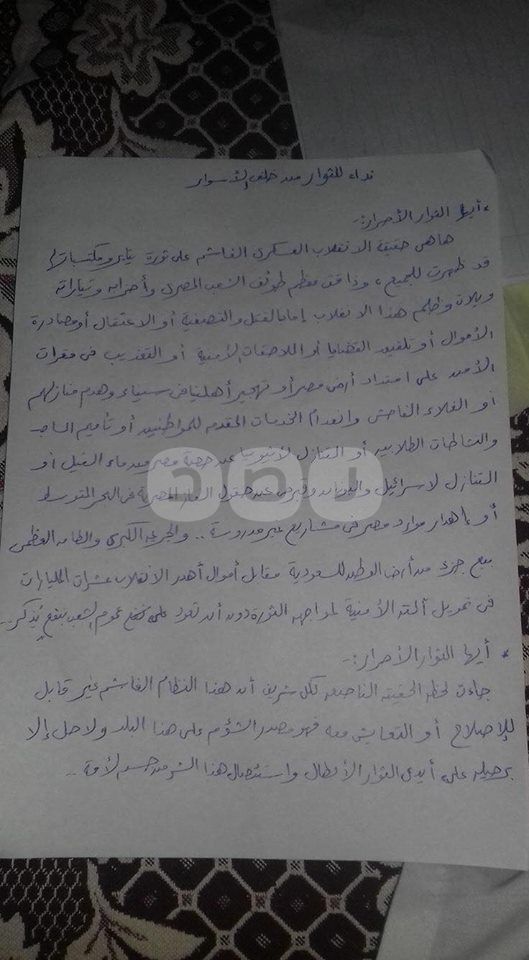 نداء للثوار من خلف الأسوار
* أيها الثوار الأحرار:-
ها هى حقيقة الانقلاب العسكرى الغاشم على ثورة يناير ومكتسباتها
قد ظهرت للجميع، وذاقت معظم طوائف الشعب المصرى وأحزابه وتياراته
ويلات وظلم هذا الانقلاب إما بالقتل والتصفية أو الاعتقال أو مصادرة
الأموال أو تلفيق القضايا أو الملاحقات الأمنية أو التعذيب فى مقرات
الأمن على امتداد أرض مصر أو تهجير أهلنا فى سيناء وهدم منازلهم
أو الغلاء الفاحش وانعدام الخدمات المقدمه للمواطنين أو تأميم المساجد
والنشاطات الطلابيه أو التنازل لأثيوبيا عن حصة مصر من ماء النيل أو
التنازل لاسرائيل واليونان وقبرص عن حقول الغاز المصرية فى البحر المتوسط
أو إهدار موارد مصر فى مشاريع غير مدروسة .. والجريمة الكبرى والطامه العظمى
بيع جزء من أرض الوطن للسعودية مقابل أموال أهدر الانقلاب عشرات المليارات
فى تمويل آلته الأمنية لمواجهه الثورة دون أن تعود على عموم الشعب بنفع يُذكر..
* أيها الثوار الأحرار:-
جاءت لحظة الحقيقه الناصعه لكل شريف أن هذا النظام الغاشم غير قابل
للإصلاح أو التعايش معه فهو مصدر الشؤم على هذا البلد ولا حل إلا
برحيله على أيدى الثوار الأبطال واستئصال هذا الشر من جسد الأمة ..
رصد